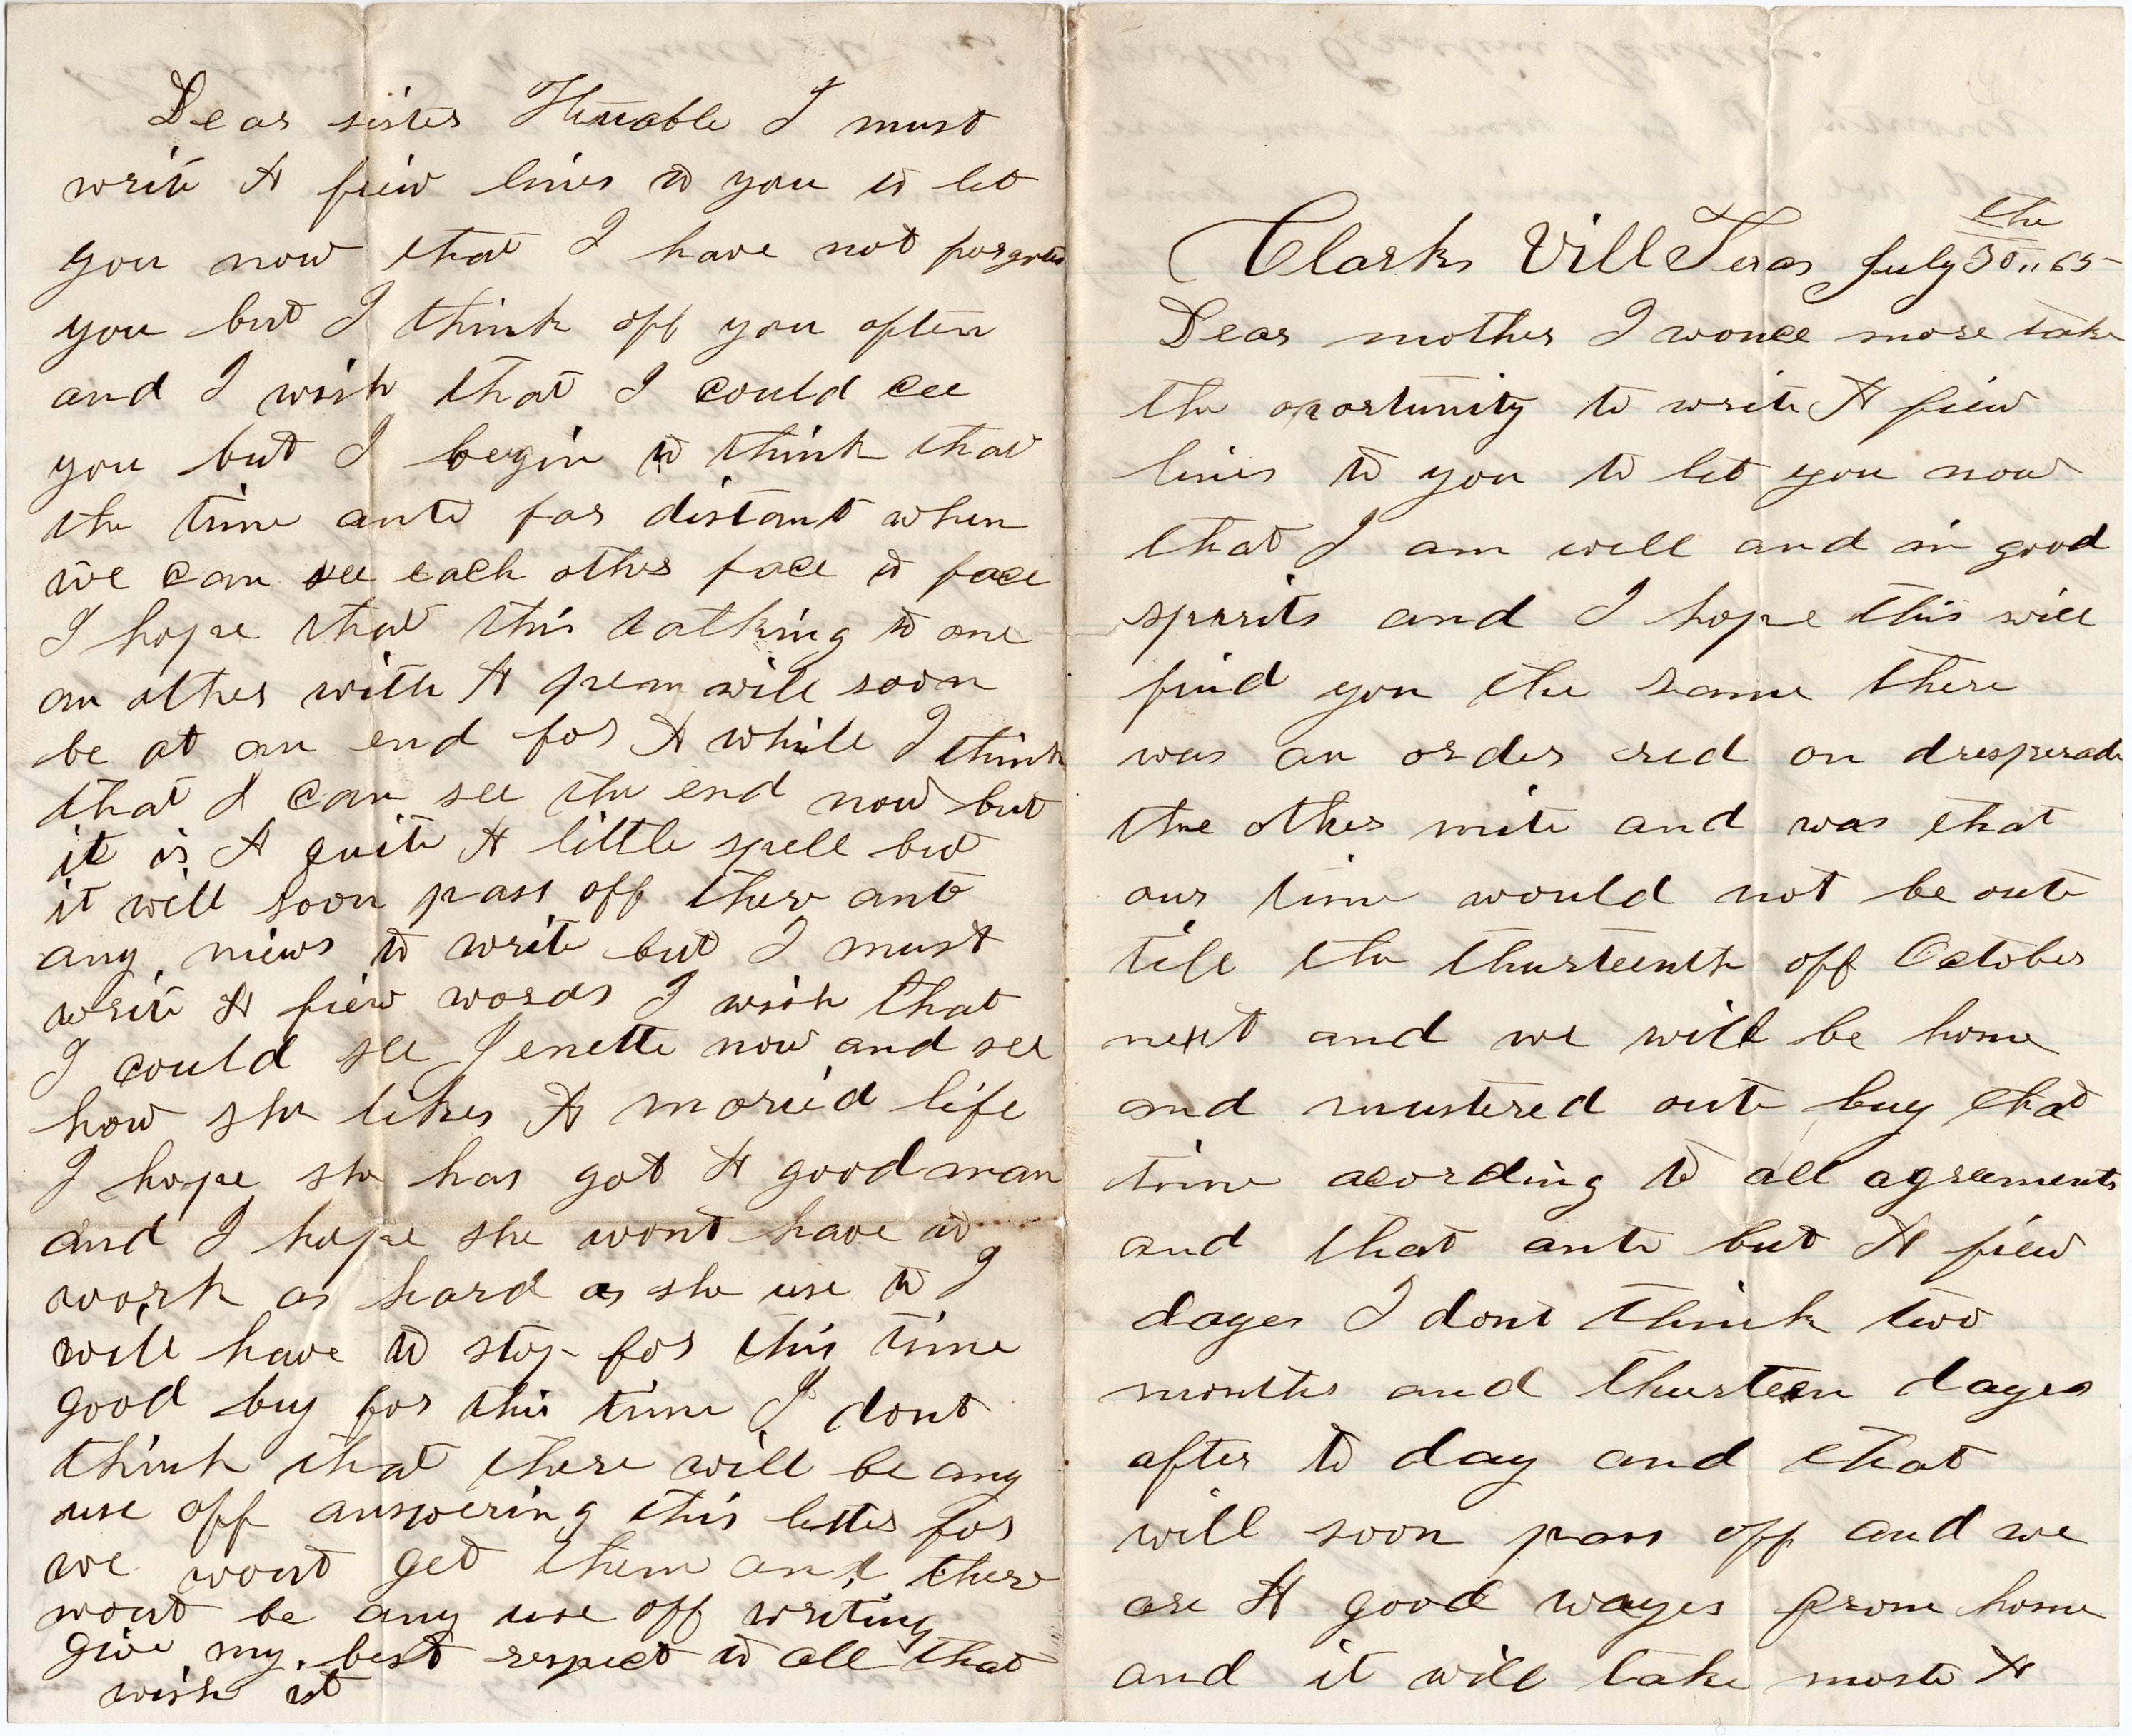 Dear sister I must
write A fiew lines to you to let
you now that I have not forgoten
you but I think off you often
and I wish that I could cee
you but I begin to think that
the time ante far distant when
we can see each other face to face
I hope that this talking to one
an other with A pen will soon
be at an end for A while I think
that I can see the end now but
it is A quite A little spell but
it will soon pass off there ante
any niews to write but I must
write A fiew words I wish that
I could see Jenette now and see
how she likes A maried life
I hope she has got A good man
and I hope she wont have to
work as hard as she use to I
will have to stop for this time
good by for this time I dont
think that there will be any
use off answering this letter for
we wont get them and there
wont be any use off writing
give my best respect to all that
wish it
Clarks Vill Texas July 30the 65
Dear mother I wonce more take
the oportunity to write A fiew
lines to you to let you now
that I am well and in good
spirits and I hope this will
find you the same there
was an order red on dresperade
the other nite and was that
our time would not be oute
till the thurteenth off October
next and we will be home
and mustered oute buy that
time acording to all agreements
and that ante but A fiew
dayes I dont think two
months and thurteen dayes
after to day and that
will soon pass off and we
are A good wayes from home
and it will take moste A